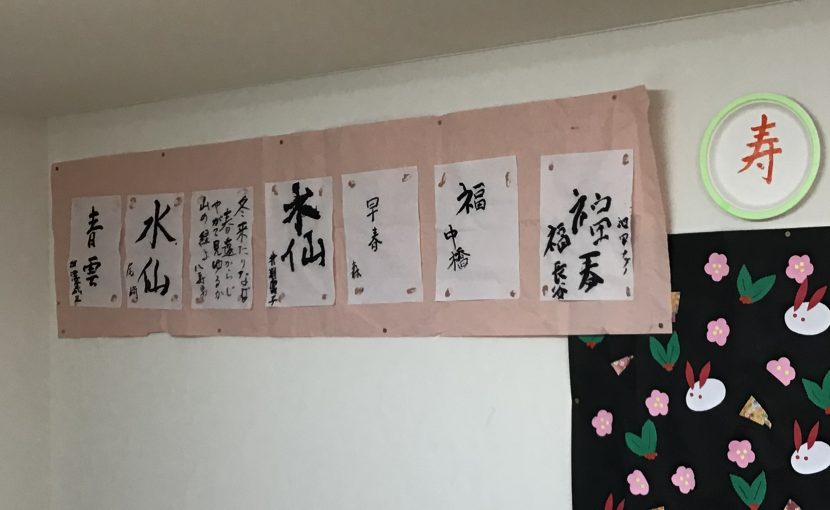 寿
福春
福 長谷
福
中橋
早春
森
水仙
冬来たりなば
春遠からじ
やがて見ゆるか
山の緑よ
水仙
尾崎
青雲